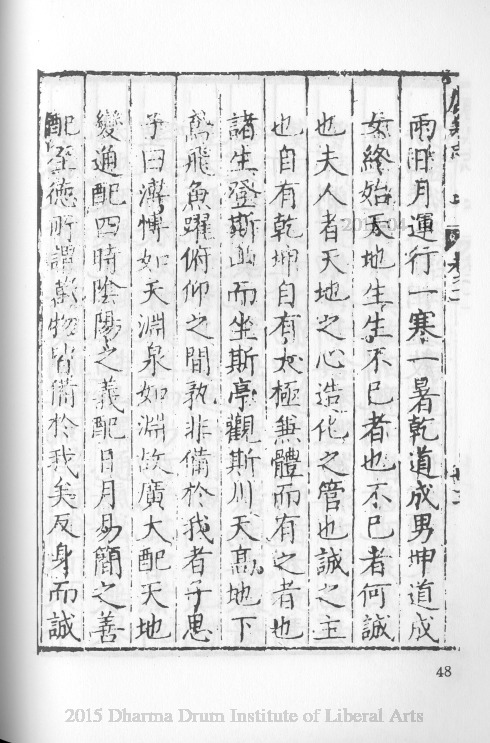 雨日月運行一寒一暑乾道成男坤道成
女終始天地生生不已者也不已者何誠
也夫人者天地之心造化之管也誠之主
也自有乾坤自有太極無體而有之者也
諸生登斯山而坐斯亭觀斯川天高地下
鳶飛魚躍俯仰之間孰非備於我者子思
子曰溥博如天淵泉如淵故廣大配天地
變通配四時陰陽之義配日月易簡之善
配至德所謂萬物皆備於我矣反身而誠
48
2015 Dharma Drum Institute of Liberal Arts